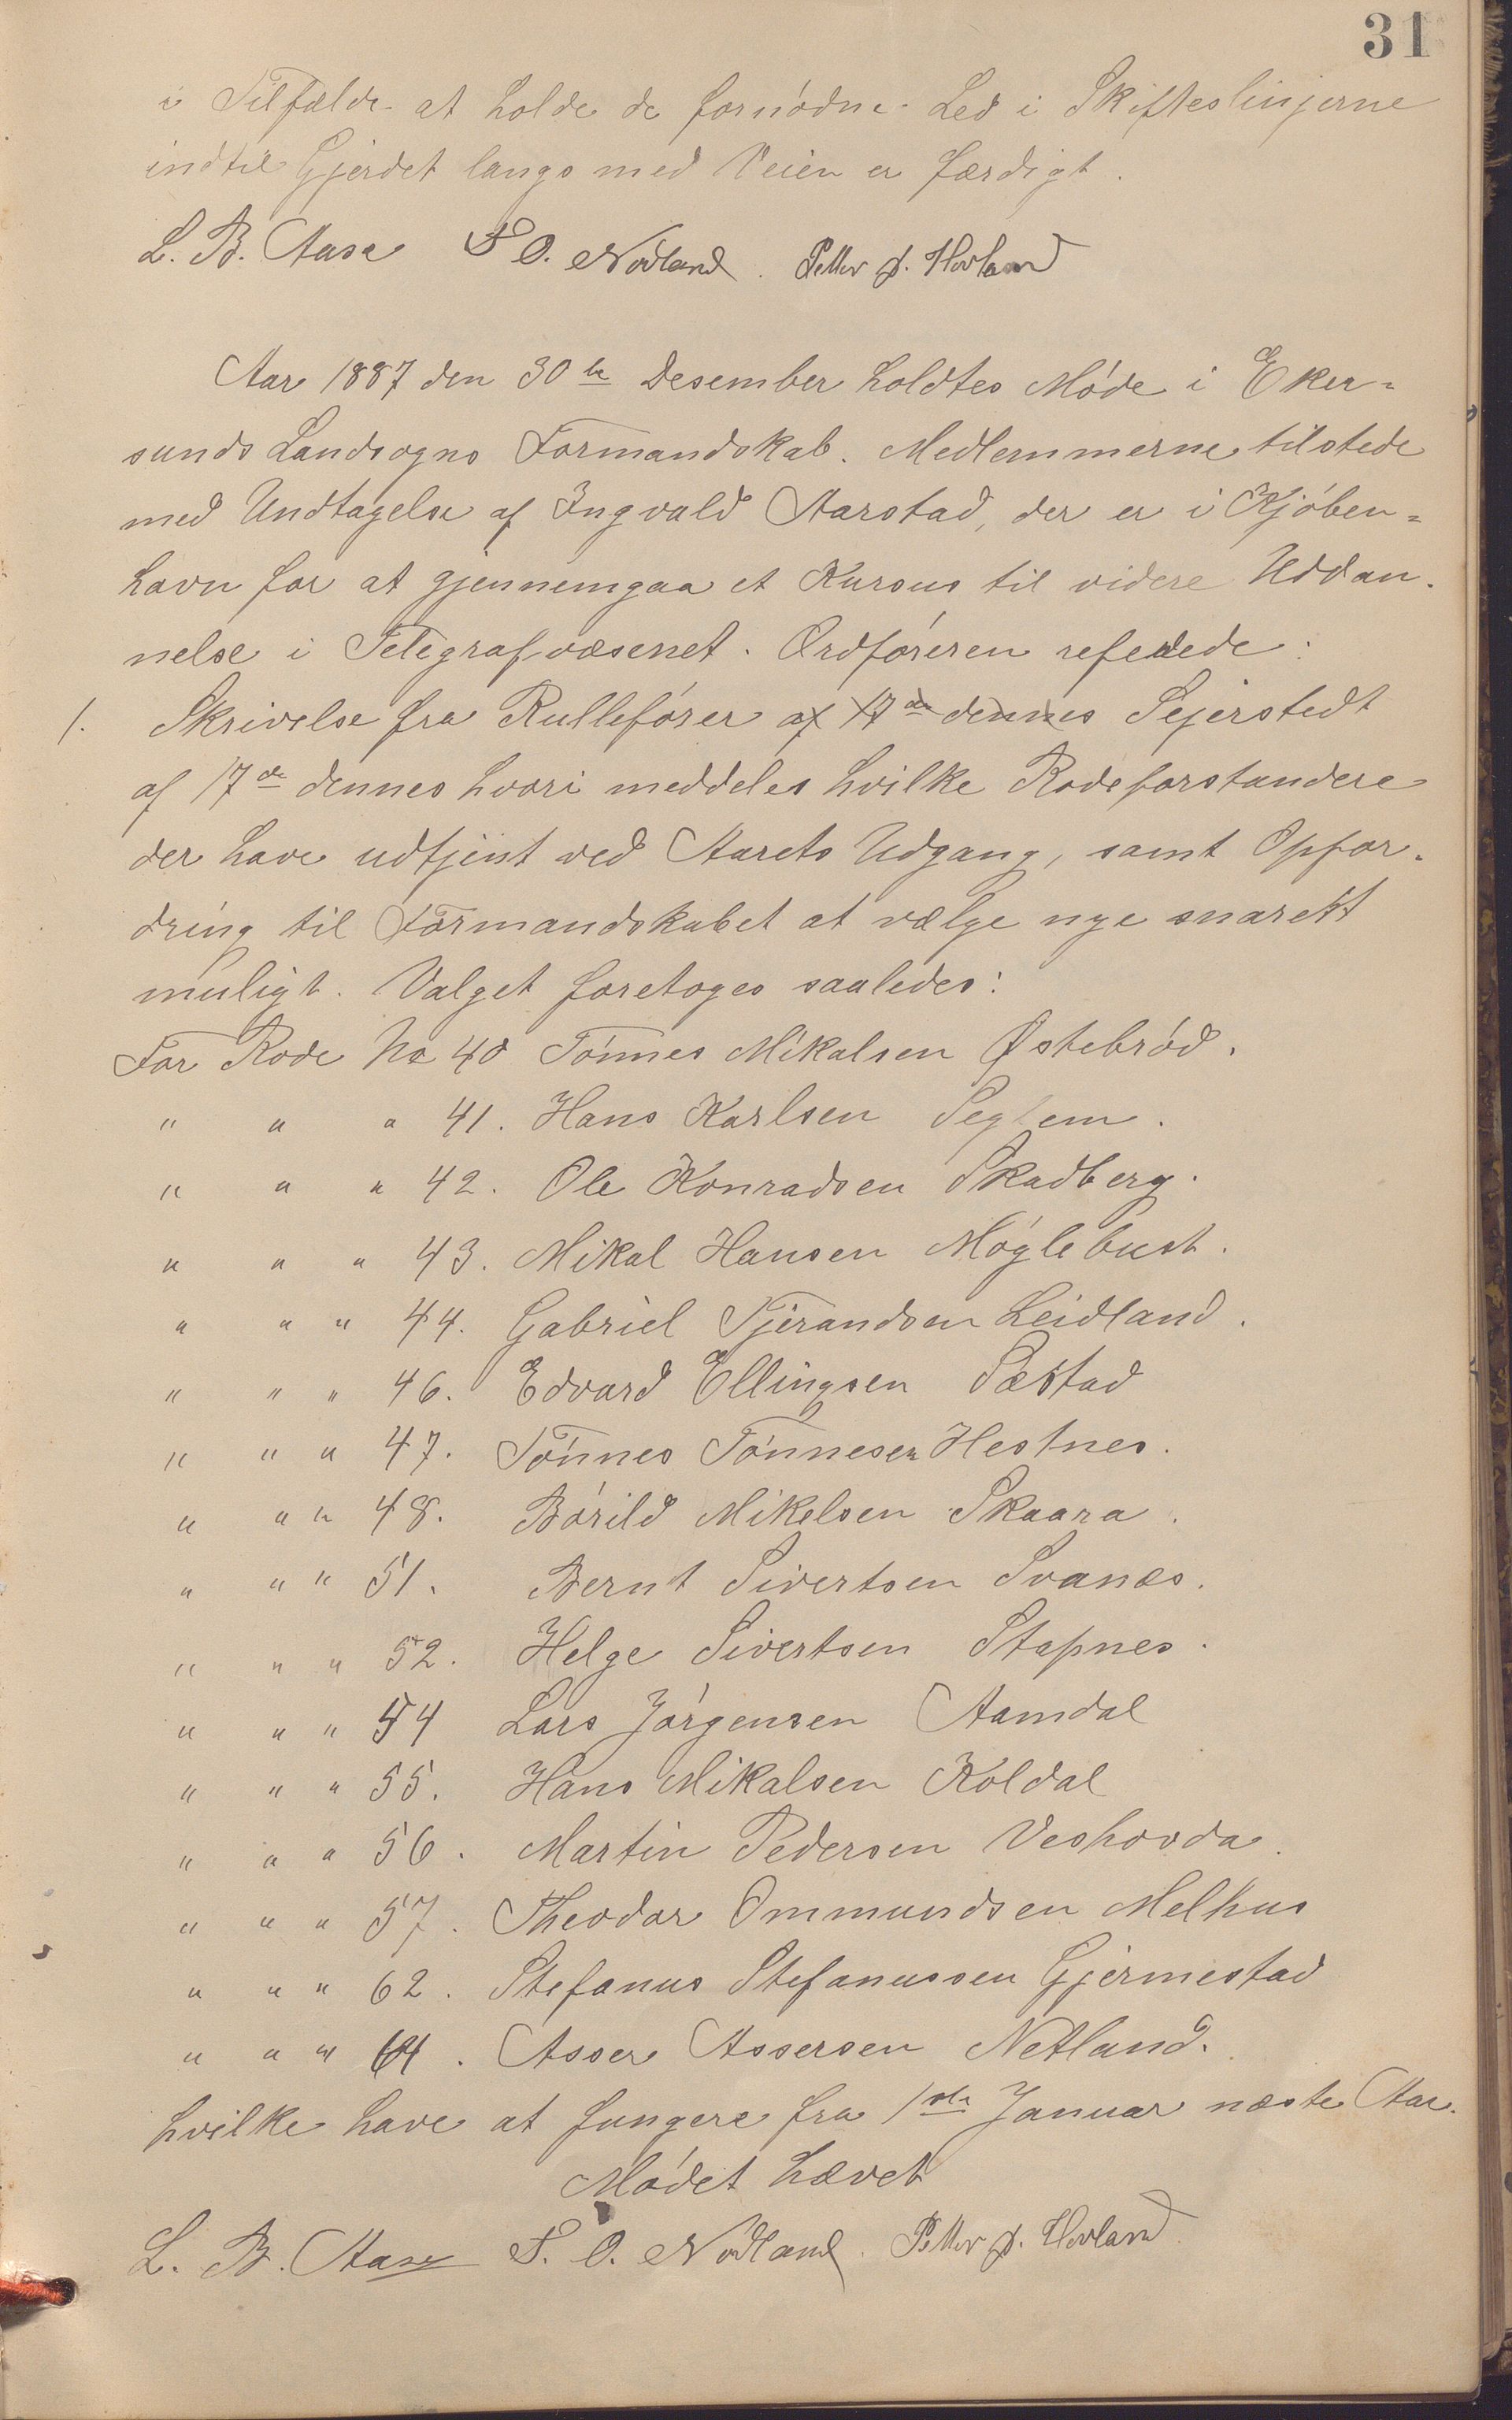 31
i Tilfælde at holde de fornódne Led i Skifteslinjerne
indtil Gjerdet langs med Veien er færdigt.
L. B. Aase S O. Nódland. Petter J. Hovland
Aar 1887 den 30te Desember holdtes Móde i Eker-
sunds Landsogns Formandskab. Medlemmerne tilstede
med Undtagelse af Ingvald Aarstad, der er i Kjóben-
havn for at gjennemgaa et Kursus til videre Uddan-
nelse i Telegrafvæsenet. Ordfóreren refererede:
1. Skrivelse fra Rullefórer af 17de dennes Sejerstedt
af 17de dennes hvori meddeles hvilke Rodeforstandere
der have udtjent ved Aarets Udgang, samt Opfor-
dring til Formandskabet at vælge nye snarest
muligt. Valget foretoges saaledes:
For Rode No 40 Tónnes Mikalsen Østebród.
" " " 41. Hans Karlsen Seglem.
" " " 42. Ole Konradsen Skadberg.
" " " 43. Mikal Hansen Móglebust.
" " " 44. Gabriel Tjerandsen Leidland.
" " " 46. Edvard Ellingsen Sæstad
" " " 47. Tónnes Tónnesen Hestnes.
" " " 48. Bórild Mikelsen Skaara.
" " " 51. Bernt Sivertsen Svanæs.
" " " 52. Helge Sivertsen Stapnes.
" " " 54 Lars Jórgensen Aamdal
" " " 55. Hans Mikalsen Koldal
" " " 56. Martin Pedersen Veshovda.
" " " 57. Theodor Ommundsen Melhus
" " " 62. Stefanus Stefanussen Gjermestad
" " " 64. Asser Assersen Netland.
hvilke have at fungere fra 1ste Januar næste Aar.
Módet hævet
L. B. Aase S. O. Nódland. Petter J. Hovland.